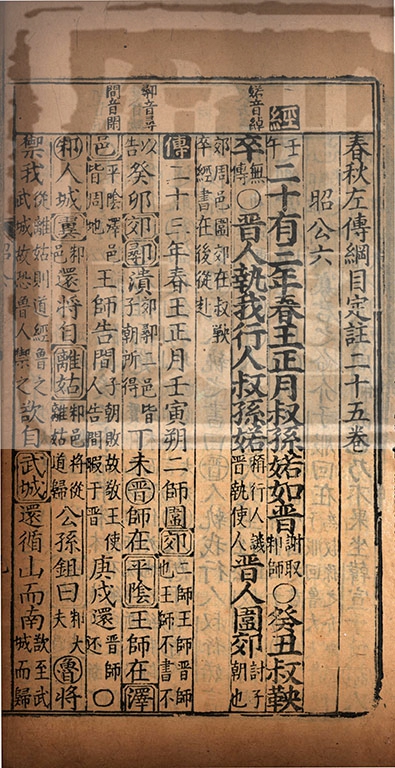 春秋左傳綱目定註二十五卷
昭公六
婼音綽
經 壬午 二十有三年春王正月叔孫婼如晉 謝取邾師 ○癸丑叔鞅
卒 無傳 ○晉人執我行人叔孫婼 稱行人譏晉執使人 晉人圍郊 討子朝也
郊周邑圍郊在叔鞅卒經書在後從赴
傳 二十三年春王正月壬寅朔二師圍郊 二師王師晉師也王師不書不
鄩音尋
以告 癸卯郊鄩潰 郊鄩二邑皆子朝所得 丁未晉師在平陰王師在澤
間音閑
邑 平陰澤邑皆周地 王師告間 子朝敗故敬王使人告間暇于晉 庚戌還 晉師還 ○
邾人城翼 邾邑 還將自離姑 邾邑將從離姑道歸 公孫鉏曰 邾大夫 魯將
禦我 從離姑則道經魯之武城故恐魯人禦之 欲自武城還循山而南 欲至武城而歸